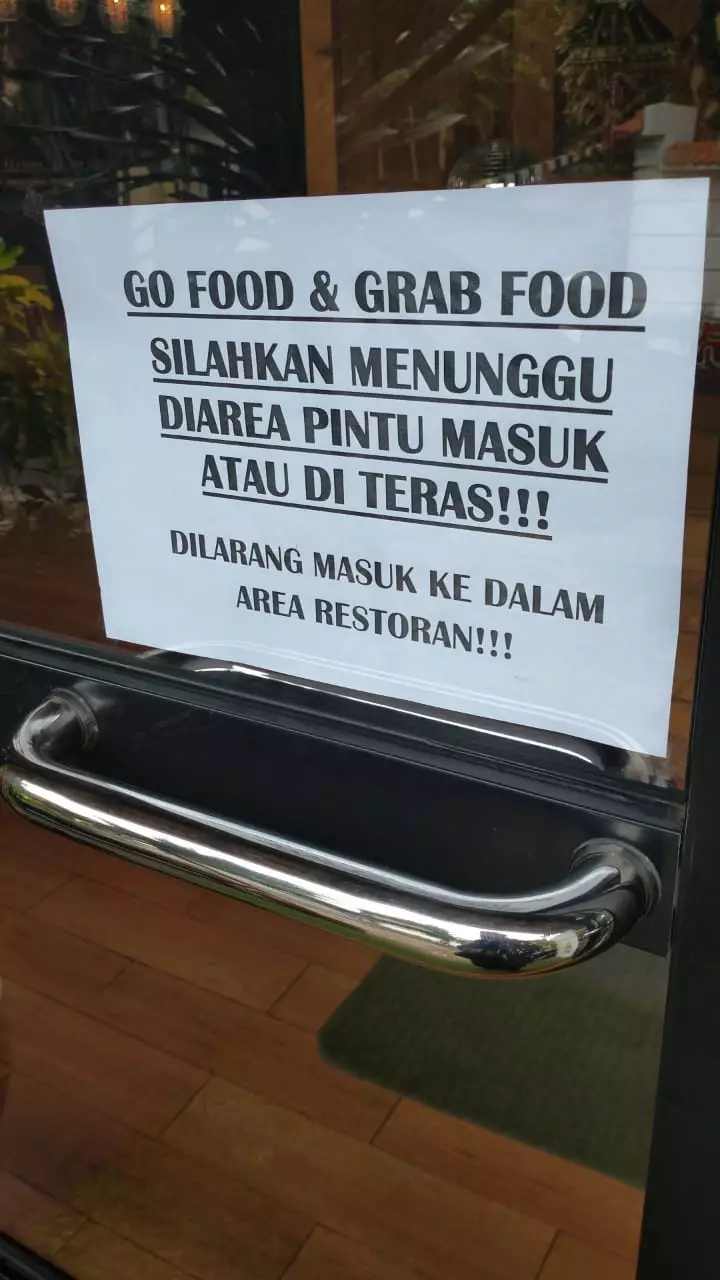 GO FOOD & GRAB FOOD
SILAHKAN MENUNGGU
DIAREA PINTU MASUK
ATAU DI TERAS!!!
DILARANG MASUK KE DALAM
AREA RESTORAN!!!